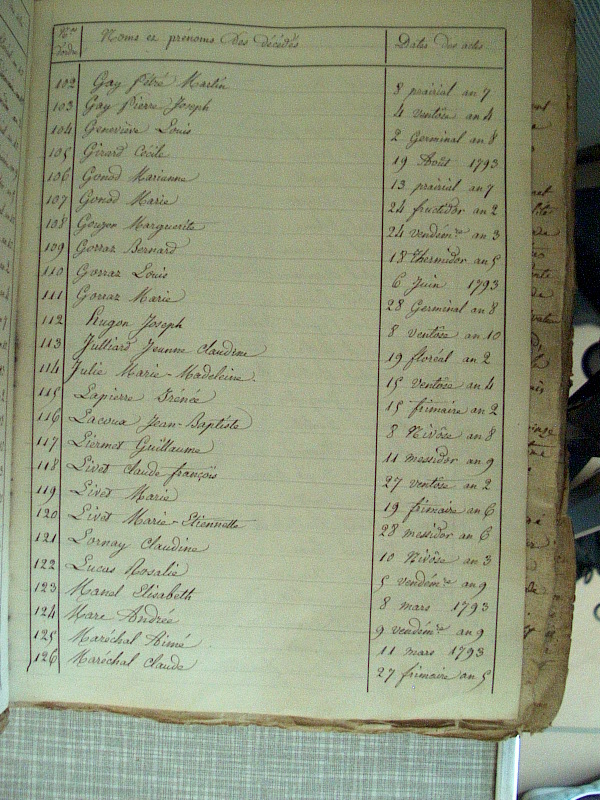 Nos d'ordre Noms et prénoms des décédés Dates des acts
102 Gay Pétré Martin 8 prairial an 7
103 Gay Pierre Joseph 4 ventôse an 4
104 Geneviève Louis 2 Germinal an 8
105 Girard Cécile 19 Août 1793
106 Gonod Marianne 13 prairial an 7
107 Gonod Marie 24 fructidor an 2
108 Gouzon Marguerite 24 vendémre an 3
109 Gorraz Bernard 18 thermidor an 5
110 Gorraz Louis 6 Juin 1793
111 Gorraz Marie 28 Germinal an 8
112 Hugon Joseph 8 ventôse an 10
113 Julliard Jeanne Claudine 19 floréal an 2
114 Julie Marie-Madeleine 15 ventôse an 4
115 Lapierre Irénée 15 frimaire an 2
116 Lacoua Jean-Baptiste 8 Nivôse an 8
117 Liermet Guillaume 11 messidor an 9
118 Livet Claude françois 27 ventôse an 2
119 Livet Marie 19 frimaire an 6
120 Livet Marie-Etiennette 28 messidor an 6
121 Lornay Claudine 10 Nivôse an 3
122 Lucas Rosalie 5 vendémre an 9
123 Manel Elisabeth 8 mars 1793
124 Mare Andrée 9 vendémre an 9
125 Maréchal Aimé 11 mars 1793
126 Maréchal Claude 27 frimaire an 5